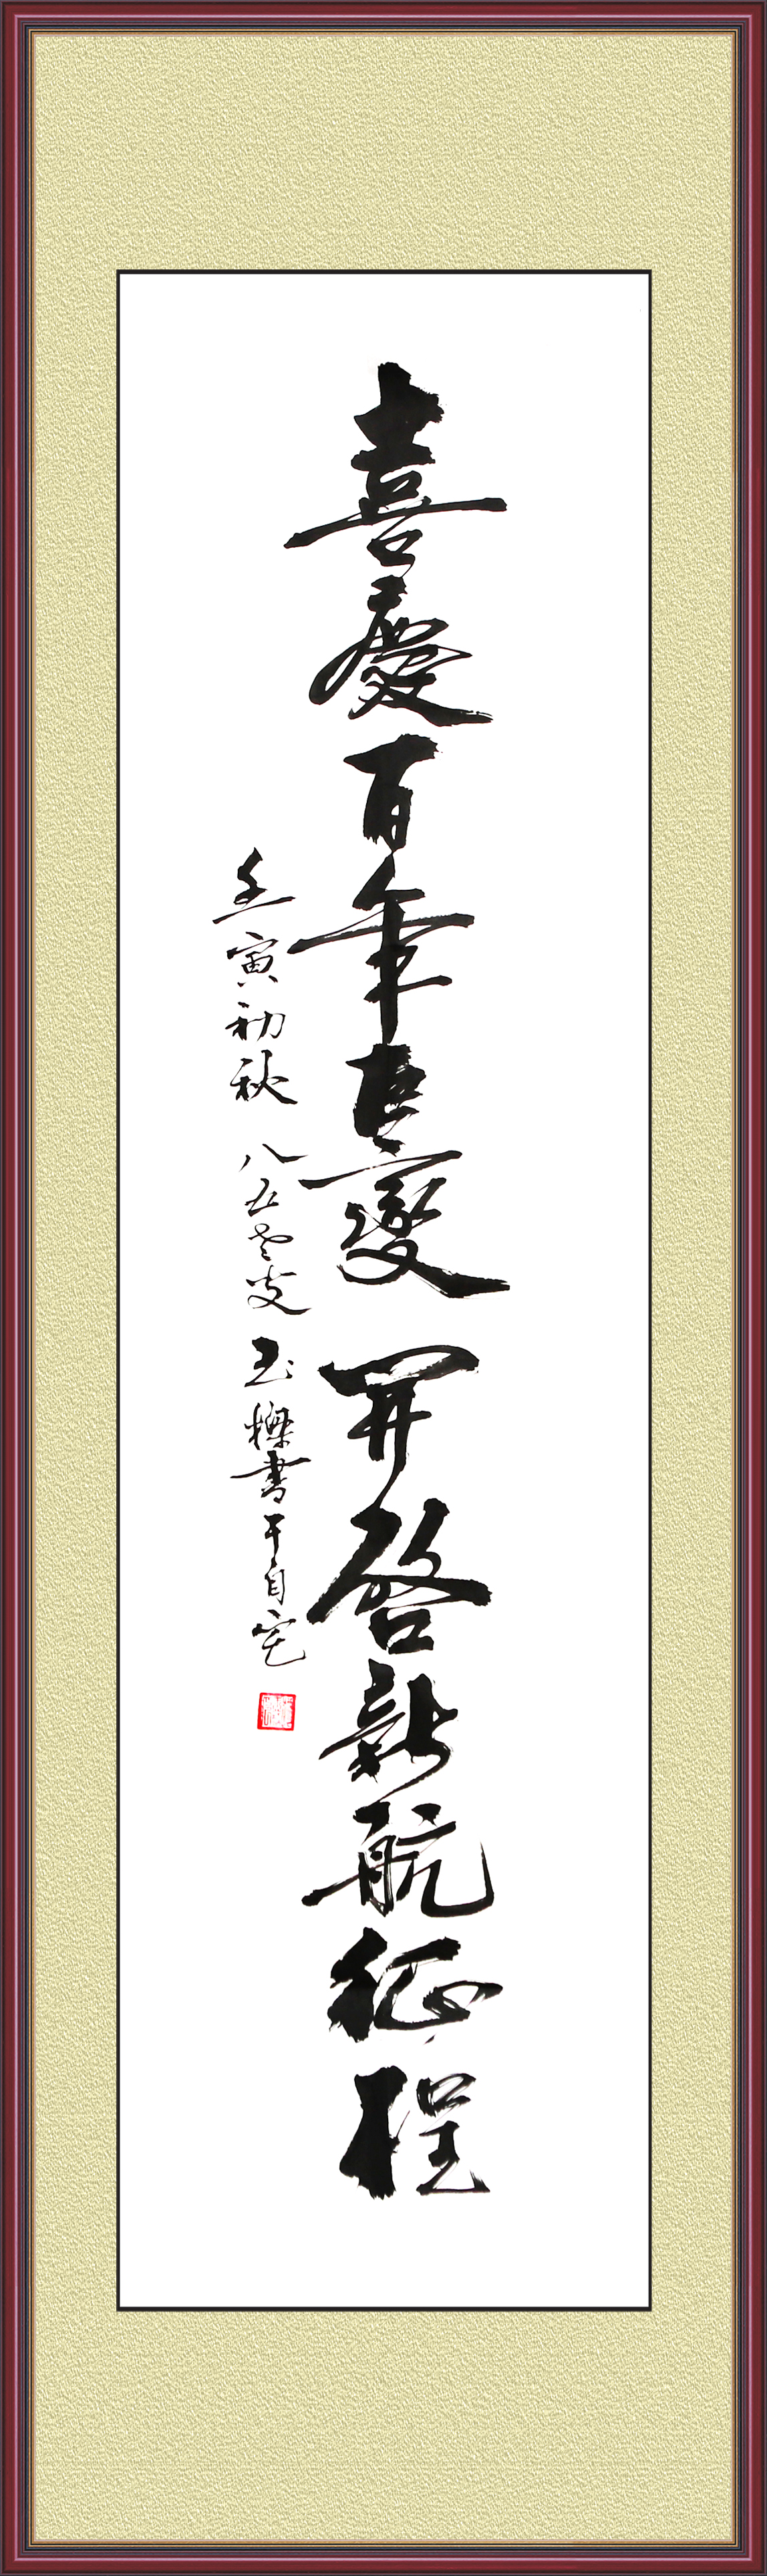 喜慶百年巨變開啓新航征程
壬寅初秋 八五老叟 玉樑書于自宅